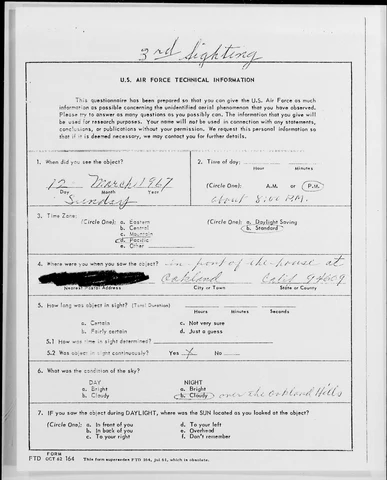 3rd Sighting
U.S. AIR FORCE TECHNICAL INFORMATION
This questionnaire has been prepared so that you can give the U.S. Air Force as much
information as possible concerning the unidentified aerial phenomenon that you have observed.
Please try to answer as many questions as you possibly can. The information that you give will
be used for research purposes. Your name will not be used in connection with any statements,
conclusions, or publications without your permission. We request this personal information so
that if it is deemed necessary, we may contact you for further details.
1. When did you see the object?
12 March 1967
Day Month Year
Sunday
2. Time of day:
Hour Minutes
(Circle One): A.M. or P.M.
about 8:00 P.M.
3. Time Zone:
(Circle One): a. Eastern
b. Central
c. Mountain
d. Pacific
e. Other
(Circle One): a. Daylight Saving
b. Standard
4. Where were you when you saw the object?
in front of the house at
Oakland Calif 94609
Nearest Postal Address City or Town State or County
5. How long was object in sight? (Total Duration)
Hours Minutes Seconds
a. Certain c. Not very sure
b. Fairly certain d. Just a guess
5.1 How was time in sight determined?
5.2 Was object in sight continuously? Yes No
6. What was the condition of the sky?
DAY NIGHT
a. Bright a. Bright
b. Cloudy b. Cloudy over the Oakland Hills
7. IF you saw the object during DAYLIGHT, where was the SUN located as you looked at the object?
(Circle One): a. In front of you d. To your left
b. In back of you e. Overhead
c. To your right f. Don't remember
FORM
FTD OCT 62 164 This form supersedes FTD 164, Jul 61, which is obsolete.